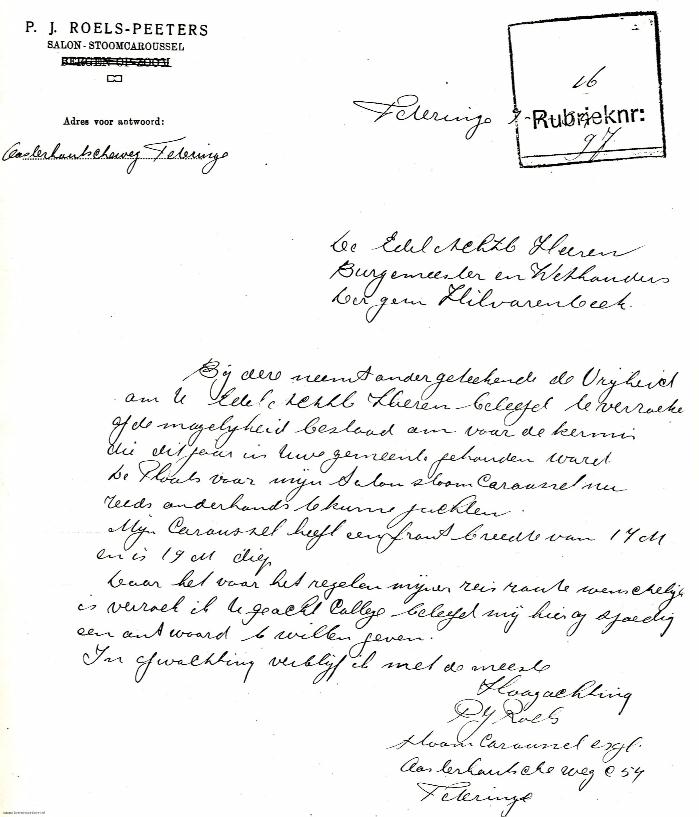 P. J. ROELS-PEETERS
SALON-STOOMCAROUSSEL
BERGEN OP ZOOM
Adres voor antwoord:
Oosterhoutscheweg Teteringe
Teteringe 9-
16
Rubrieknr:
97
De Edel Achtb Heeren
Burgemeester en Wethouders
der gem Hilvarenbeek.
Bij deze neemt ondergeteekende de Vrijheid
om U Edel Achtb Heeren beleefd te verzoeke
of de mogelijkheid bestaad om voor de kermis
die dit jaar in Uwe gemeente gehouden word
de Plaats voor mijn Salon stoom Caroussel nu
reeds onderhands te kunne pachten.
Mijn Caroussel heeft een front breedte van 17 M
en is 19 M diep
Daar het voor het regelen mijner reis route wenschelijk
is verzoek ik U geacht College beleefd mij hierop spoedig
een antwoord te willen geven.
In afwachting verblijf ik met de meeste
Hoogachting
P J Roels
stoom Caroussel expl.
Oosterhoutsche weg C 54
Teteringe